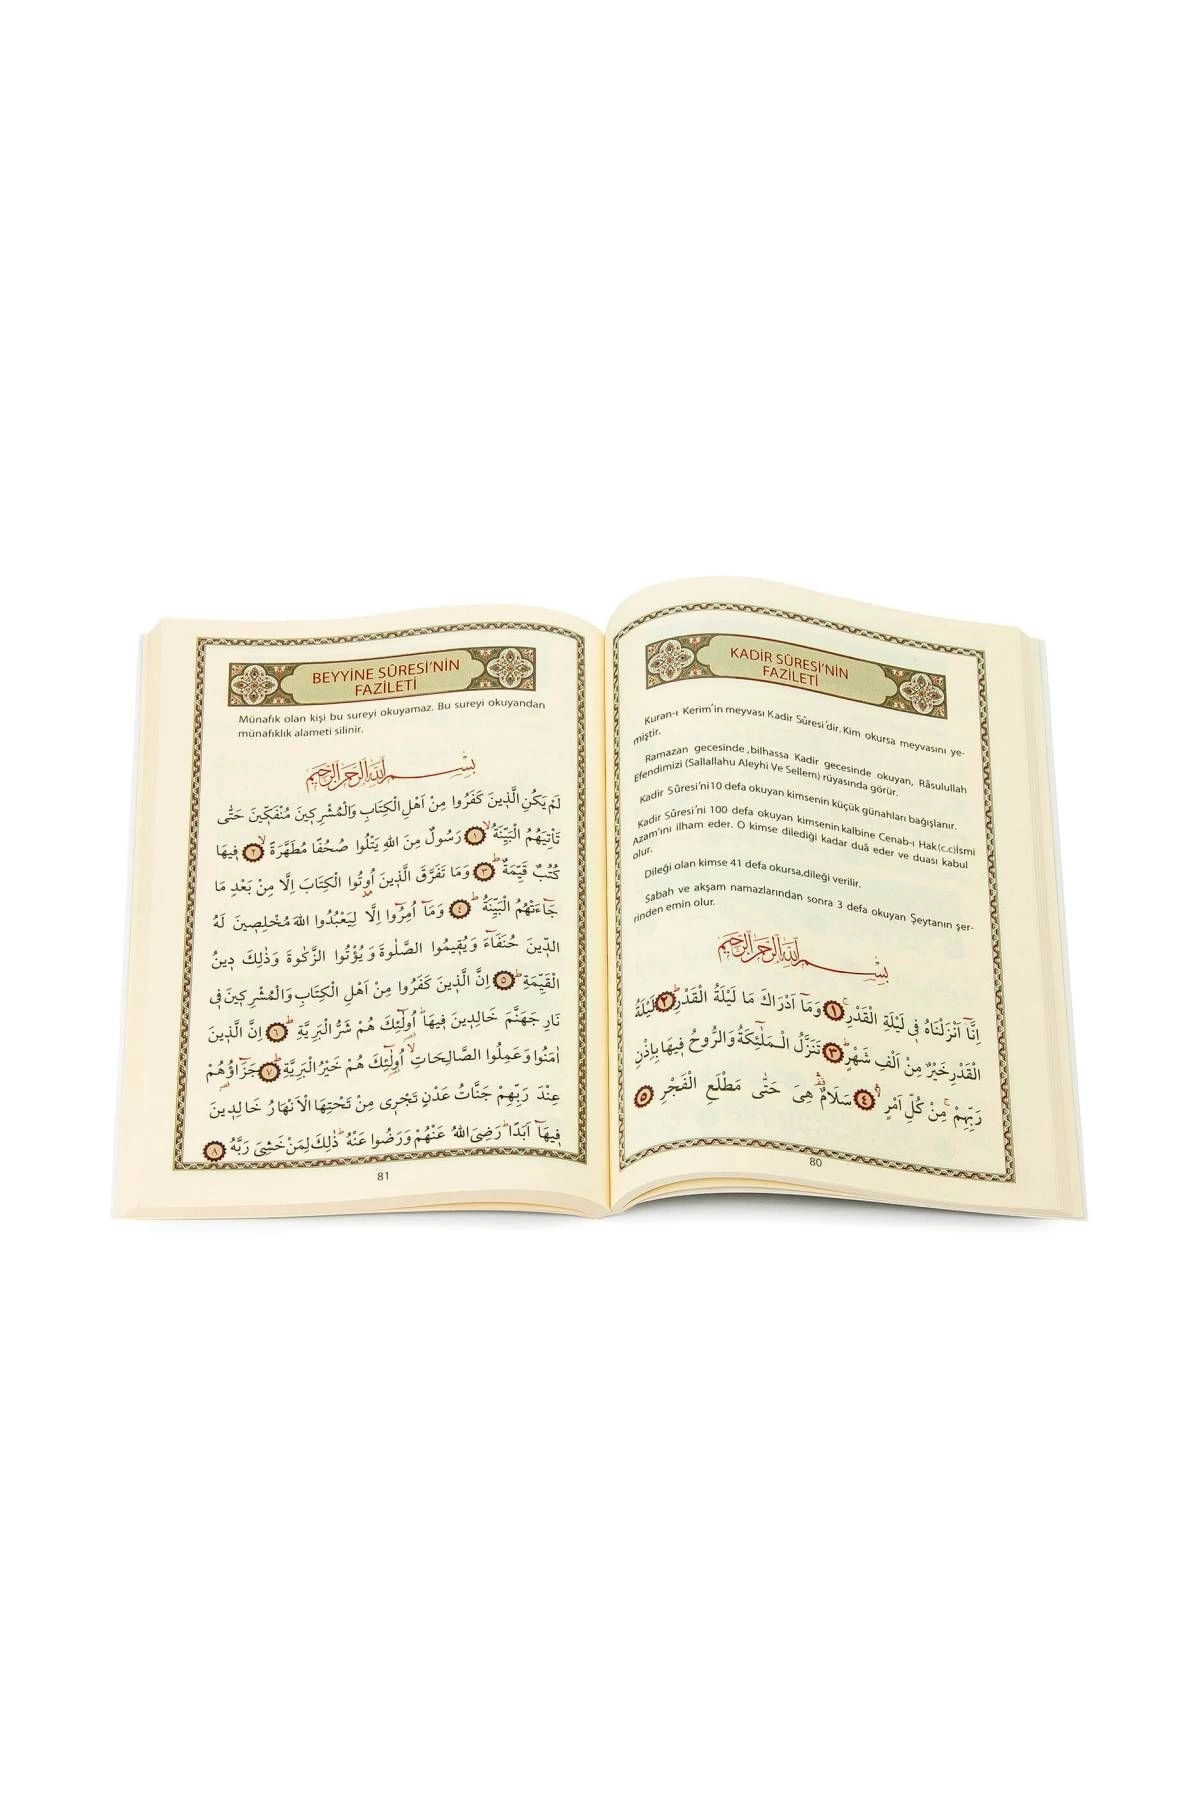 KADİR SÛRESİ’NİN
FAZİLETİ
Kuran-ı Kerim’in meyvası Kadir Sûresi’dir. Kim okursa meyvasını ye-
miştir.
Ramazan gecesinde,bilhassa Kadir gecesinde okuyan, Râsulullah
Efendimizi (Sallallahu Aleyhi Ve Sellem) rüyasında görür.
Kadir Sûresi’ni10 defa okuyan kimsenin küçük günahları bağışlanır.
Kadir Sûresi’ni 100 defa okuyan kimsenin kalbine Cenab-ı Hak(c.c)İsmi
Azam’ını ilham eder. O kimse dilediği kadar duâ eder ve duası kabul
olur.
Dileği olan kimse 41 defa okursa,dileği verilir.
Sabah ve akşam namazlarından sonra 3 defa okuyan Şeytanın şer-
rinden emin olur.
بِسْمِ اللّٰهِ الرَّحْمٰنِ الرَّحِيمِ
اِنَّٓا اَنْزَلْنَاهُ فٖى لَيْلَةِ الْقَدْرِۚ ﴿١﴾ وَمَٓا اَدْرٰيكَ مَا لَيْلَةُ الْقَدْرِۜ ﴿٢﴾ لَيْلَةُ
الْقَدْرِ خَيْرٌ مِنْ اَلْفِ شَهْرٍۜ ﴿٣﴾ تَنَزَّلُ الْمَلٰٓئِكَةُ وَالرُّوحُ فٖيهَا بِاِذْنِ
رَبِّهِمْۚ مِنْ كُلِّ اَمْرٍۙ ﴿٤﴾ سَلَامٌ۠ هِىَ حَتّٰى مَطْلَعِ الْفَجْرِ ﴿٥﴾
80
BEYYİNE SÛRESİ’NİN
FAZİLETİ
Münafık olan kişi bu sureyi okuyamaz. Bu sureyi okuyandan
münafıklık alameti silinir.
بِسْمِ اللّٰهِ الرَّحْمٰنِ الرَّحِيمِ
لَمْ يَكُنِ الَّذٖينَ كَفَرُوا مِنْ اَهْلِ الْكِتَابِ وَالْمُشْرِكٖينَ مُنْفَكّٖينَ حَتّٰى
تَأْتِيَهُمُ الْبَيِّنَةُۙ ﴿١﴾ رَسُولٌ مِنَ اللّٰهِ يَتْلُوا صُحُفًا مُطَهَّرَةًۙ ﴿٢﴾ فٖيهَا
كُتُبٌ قَيِّمَةٌۜ ﴿٣﴾ وَمَا تَفَرَّقَ الَّذٖينَ اُو۫تُوا الْكِتَابَ اِلَّا مِنْ بَعْدِ مَا
جَٓاءَتْهُمُ الْبَيِّنَةُۜ ﴿٤﴾ وَمَٓا اُمِرُٓوا اِلَّا لِيَعْبُدُوا اللّٰهَ مُخْلِصٖينَ لَهُ
الدّٖينَ حُنَفَٓاءَ وَيُقٖيمُوا الصَّلٰوةَ وَيُؤْتُوا الزَّكٰوةَ وَذٰلِكَ دٖينُ
الْقَيِّمَةِۜ ﴿٥﴾ اِنَّ الَّذٖينَ كَفَرُوا مِنْ اَهْلِ الْكِتَابِ وَالْمُشْرِكٖينَ فٖى
نَارِ جَهَنَّمَ خَالِدٖينَ فٖيهَاۜ اُو۬لٰٓئِكَ هُمْ شَرُّ الْبَرِيَّةِۜ ﴿٦﴾ اِنَّ الَّذٖينَ
اٰمَنُوا وَعَمِلُوا الصَّالِحَاتِۙ اُو۬لٰٓئِكَ هُمْ خَيْرُ الْبَرِيَّةِۜ ﴿٧﴾ جَزَٓاؤُ۬هُمْ
عِنْدَ رَبِّهِمْ جَنَّاتُ عَدْنٍ تَجْرٖى مِنْ تَحْتِهَا الْاَنْهَارُ خَالِدٖينَ
فٖيهَٓا اَبَدًاۜ رَضِىَ اللّٰهُ عَنْهُمْ وَرَضُوا عَنْهُۜ ذٰلِكَ لِمَنْ خَشِىَ رَبَّهُ ﴿٨﴾
81